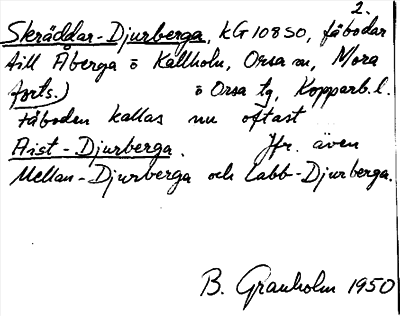 2.
Skräddar-Djurberga, KG 10850, fäbodar
till Åberga ö Kallholn, Orsa sn, Mora
forts.) ö Orsa tg, Kopparb. l.
Fäboden kallas nu oftast
Aist-Djurberga. Jfr. även
Mellan-Djurberga och Labb-Djurberga.
B. Granholm 1950